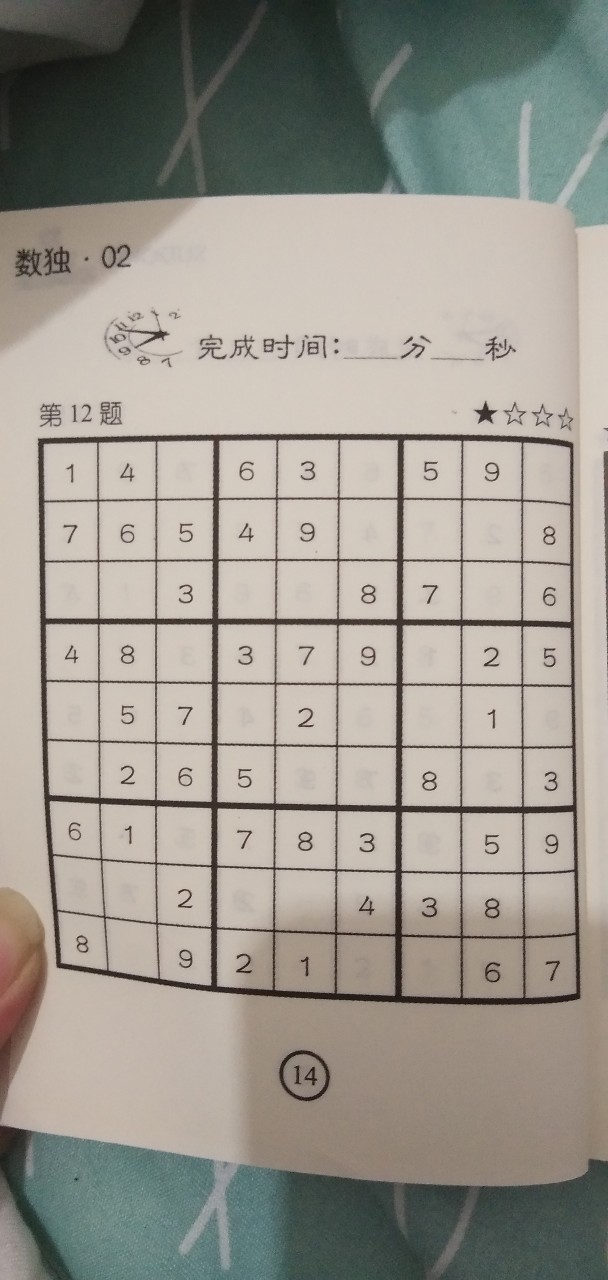 数独·02
完成时间：___分___秒
第12题 ★☆☆☆
1 4 6 3 5 9
7 6 5 4 9 8
3 8 7 6
4 8 3 7 9 2 5
5 7 2 1
2 6 5 8 3
6 1 7 8 3 5 9
2 4 3 8
8 9 2 1 6 7
14